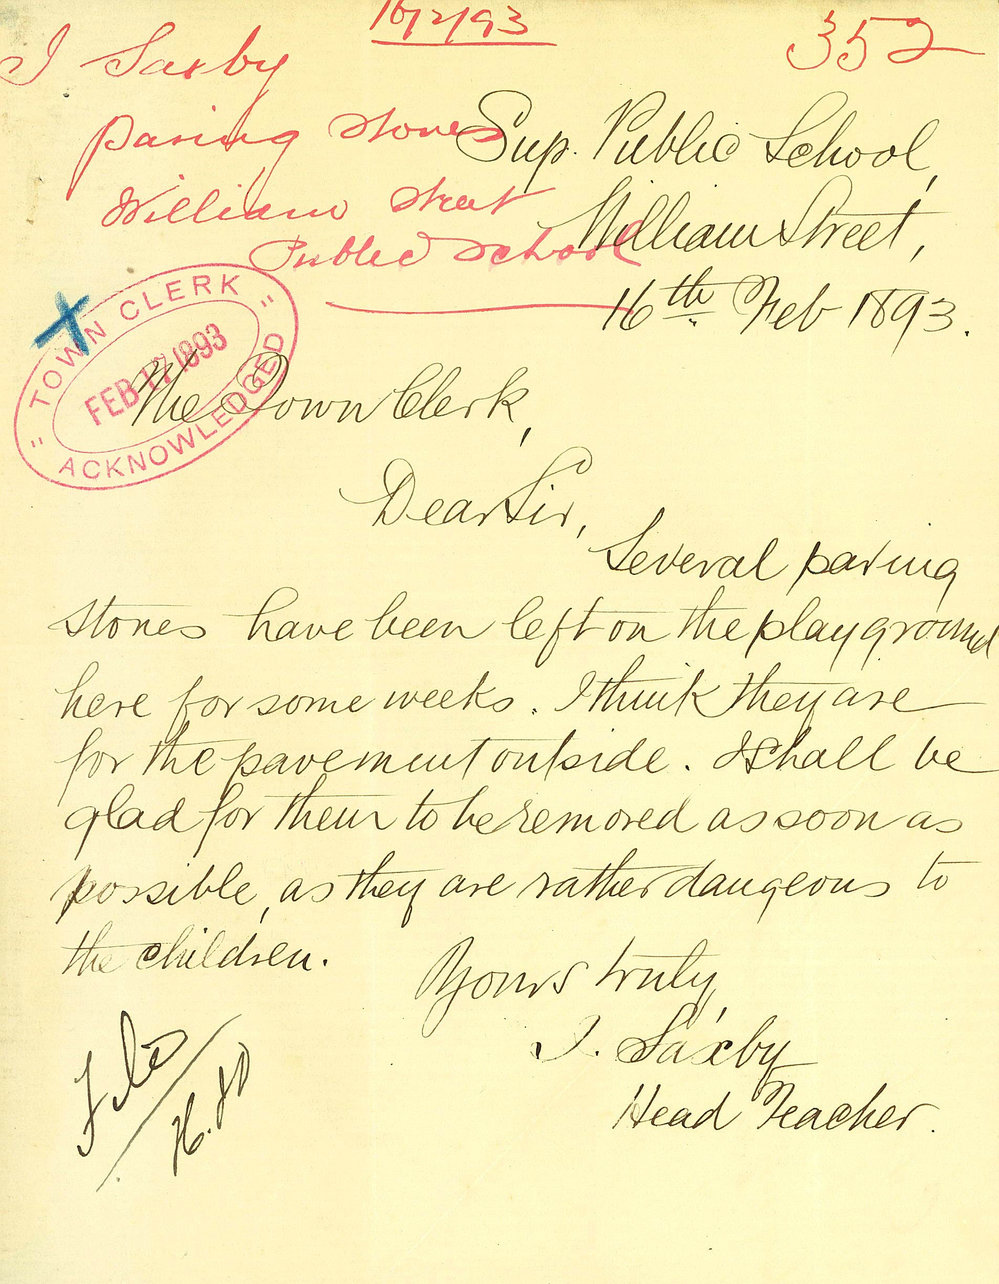 16/2/93
352
I Saxby
Paving Stones
William Street
Public School
Sup. Public School,
William Street,
16th Feb 1893.
"TOWN CLERK"
FEB 17 1893
ACKNOWLEDGED
The Town Clerk,
Dear Sir,
Several paving
stones have been left on the playground
here for some weeks. I think they are
for the pavement outside. I shall be
glad for them to be removed as soon as
possible, as they are rather dangeous to
the children.
Yours truly,
I. Saxby
Head Teacher.
File